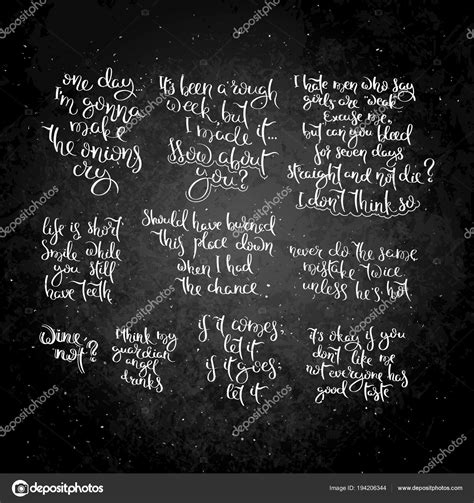 one day
I'm gonna
make
the onions
cry
It's been a rough
week, but
I made it...
How about
you?
I hate men who say
girls are weak
Excuse me,
but can you bleed
for seven days
straight and not die?
I don't think so.
life is short
smile while
you still
have teeth
Should have burned
this place down
when I had
the chance.
never do the same
mistake twice
unless he's hot
wine
not?
I think my
guardian
angel
drinks
if it comes,
let it.
if it goes,
let it.
it's okay if you
don't like me
not everyone has
good taste
depositphotos
depositphotos
Image ID: 194206344
www.depositphotos.com